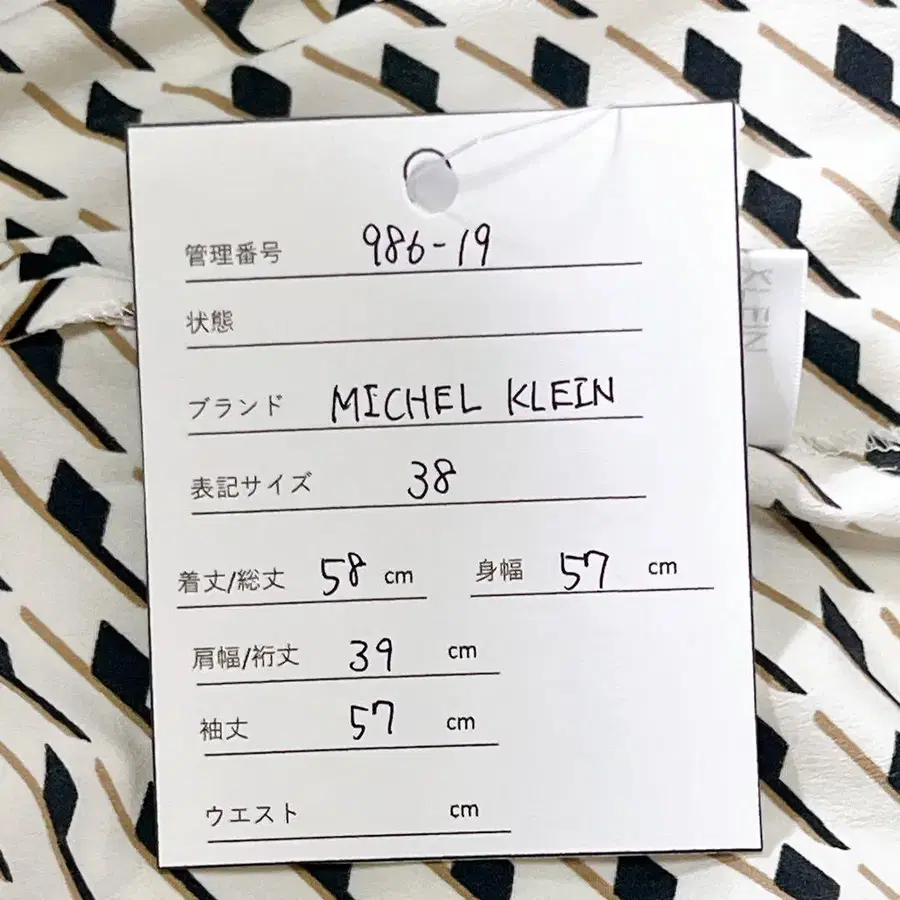 管理番号 986-19
状態
ブランド MICHEL KLEIN
表記サイズ 38
着丈/総丈 58 cm 身幅 57 cm
肩幅/裄丈 39 cm
袖丈 57 cm
ウエスト cm
KLEIN